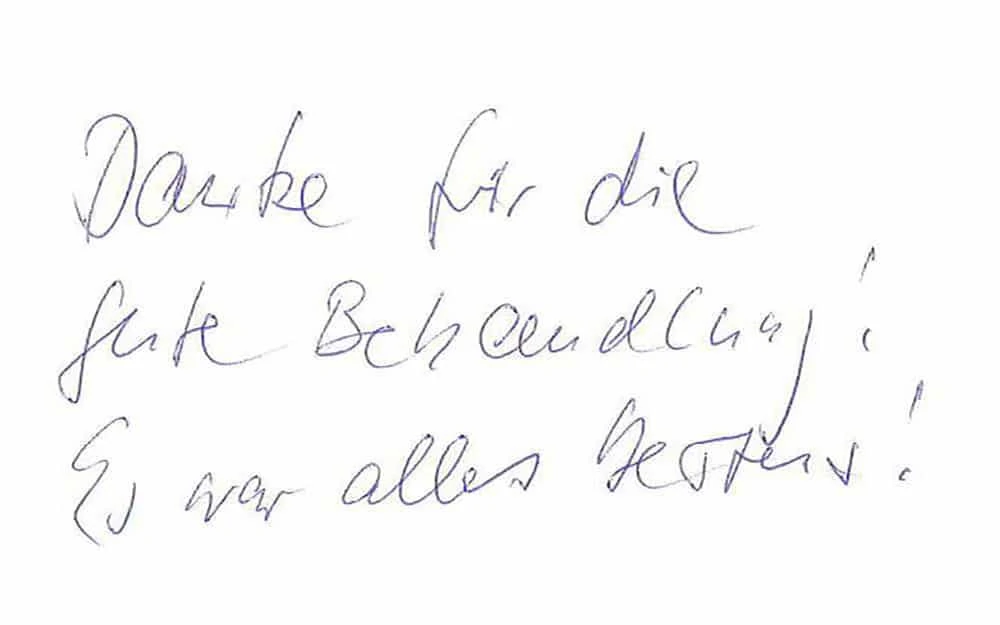 Danke für die
gute Behandlung!
Es war alles bestens!